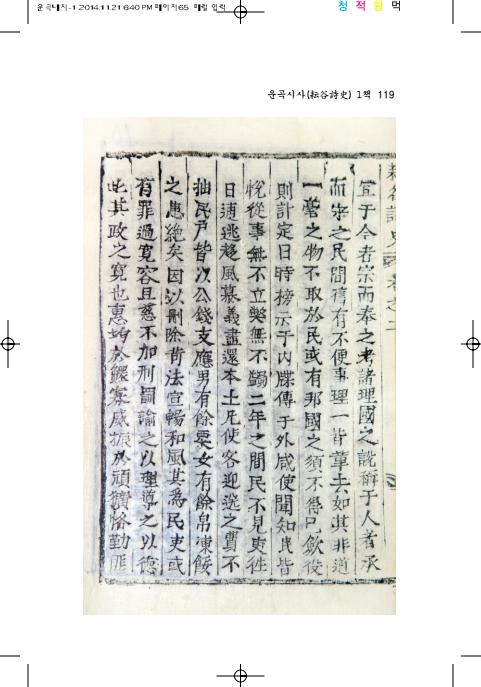 운곡시사(耘谷詩史) 1책 119
청 적 황 먹
宜于今者宗而奉之考諸理國之說稱于人者承
而字之民間舊有不便事理一皆革去如其非道
一毫之物不取於民或有邦國之須不得已斂役
則計定日時榜示于內牒傳于外咸使聞知民皆
悅從事無不立弊無不蠲二年之間民不見吏徃
日逋逃趍風慕義盡還本土凡使客迎送之費不
抽民戶皆以公錢支應男有餘粟女有餘帛凍餒
之患絶矣因以刪除苛法宣暢和風其為民吏或
有罪過寬容且慈不加刑罰諭之以理導之以德
此其政之寬也惠均於鰥寡威振於頑猾恪勤匪